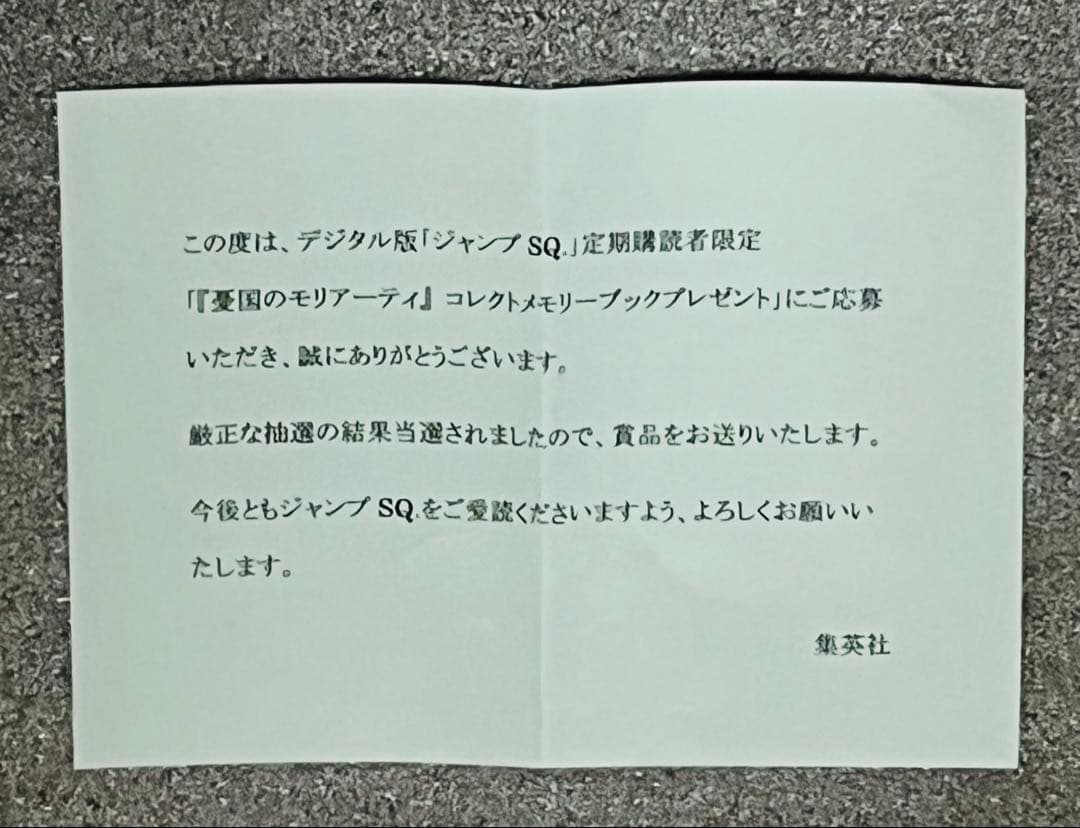 この度は、デジタル版「ジャンプSQ.」定期購読者限定
「『憂国のモリアーティ』コレクトメモリーブックプレゼント」にご応募
いただき、誠にありがとうございます。
厳正な抽選の結果当選されましたので、賞品をお送りいたします。
今後ともジャンプSQ.をご愛読くださいますよう、よろしくお願いい
たします。
集英社